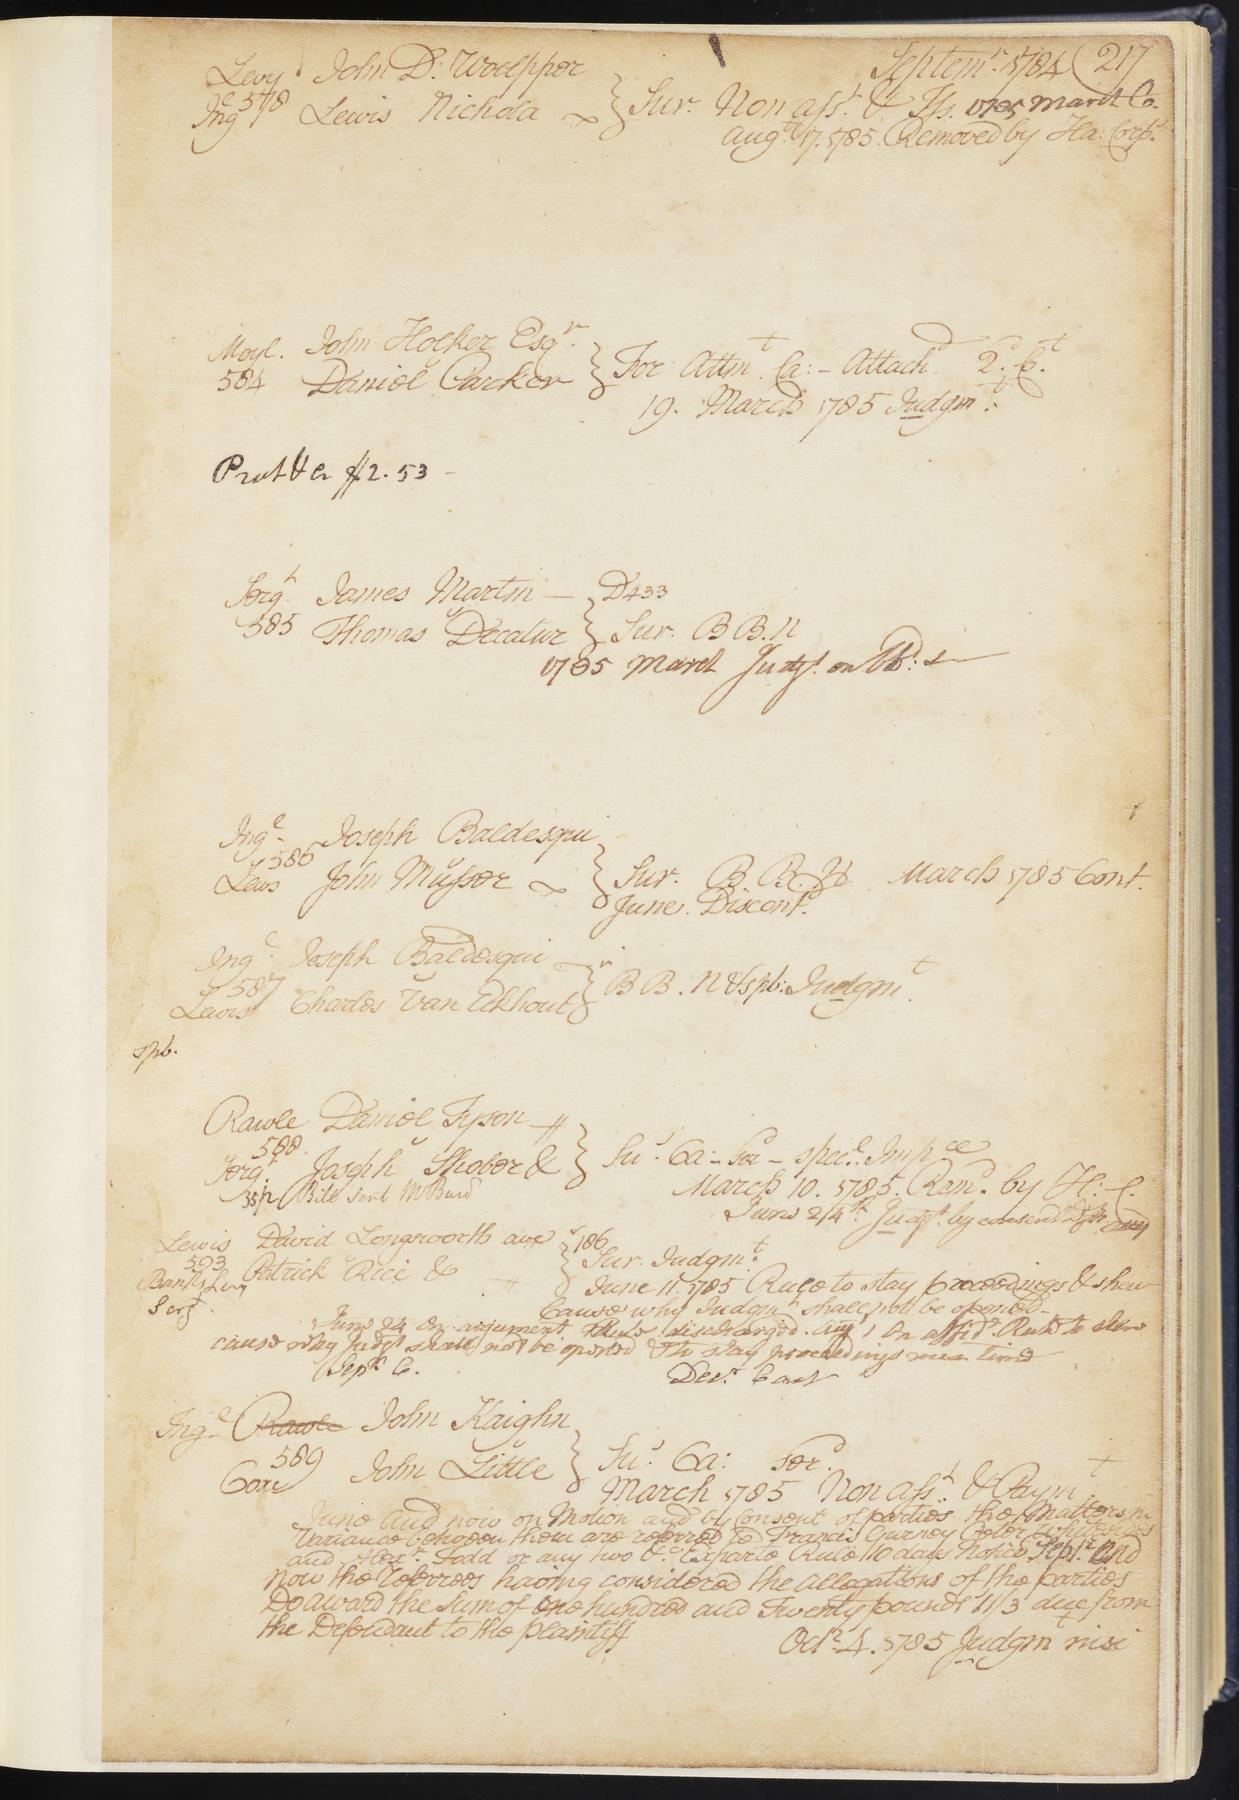 Septemr. 1784 (217
Levy John D. Woelpper
Inge 578 Lewis Nichola } Sur. Non asst. & Iss. 1785 March Co.
Augt. 17. 1785. Removed by Ha: Corps.
Moyl. John Holker Esqr.
584 Daniel Parker } For Attmt. Ca:- Attach. 2d. Ct.
19. March 1785 Judgmt.
Prot & Cr 2.53 -
Sergt. James Martin — D433
585 Thomas Decatur } Sur. B B. N
1785 March Judgt. on
Inge. Joseph Baldesqui
586
Lews John Musser } Sur. B. B. N March 1785 Cont.
June. Discontd.
Inge. Joseph Baldesqui
587
Lewis Charles Van Eckhout } B B. N & spb: Judgmt.
spb.
Rawle Daniel Tyson
588
Sergt. Joseph Shober & } Sur. Ca:- Sor - specl. Impce
Bill sent
March 10. 1785. Remd. by H. C.
June 24th. Judgt. by consent
Lewis David Longworth 186
593 Patrick Rice & } Sur. Judgmt.
Banks Levy June 11. 1785 Rule to stay proceedings & shew
Sergt. Cause why Judgmt. shall not be opened-
June 24 On argument Rule discharged. Augt 1 On affidt. Rule to shew
cause why Judgt shall not be opened & to stay proceedings mean time
Septr. C. Decr. Cont
Inge. Rawle John Kaighn
589
Coxe John Little } Sur. Ca: Sor.
March 1785 Non asst. & Paymt
June And now on Motion and by Consent of parties the Matters in
Variance between them are referred to Francis Gurney Peter
and Alexr. Todd or any two &c. Exparte Rule 10 days Notice Sept. And
now the Referrees having considered the allegations of the parties
Do award the Sum of one hundred and Twenty pounds 11/3 due from
the Defendant to the plaintiff Octr. 4. 1785 Judgmt nisi